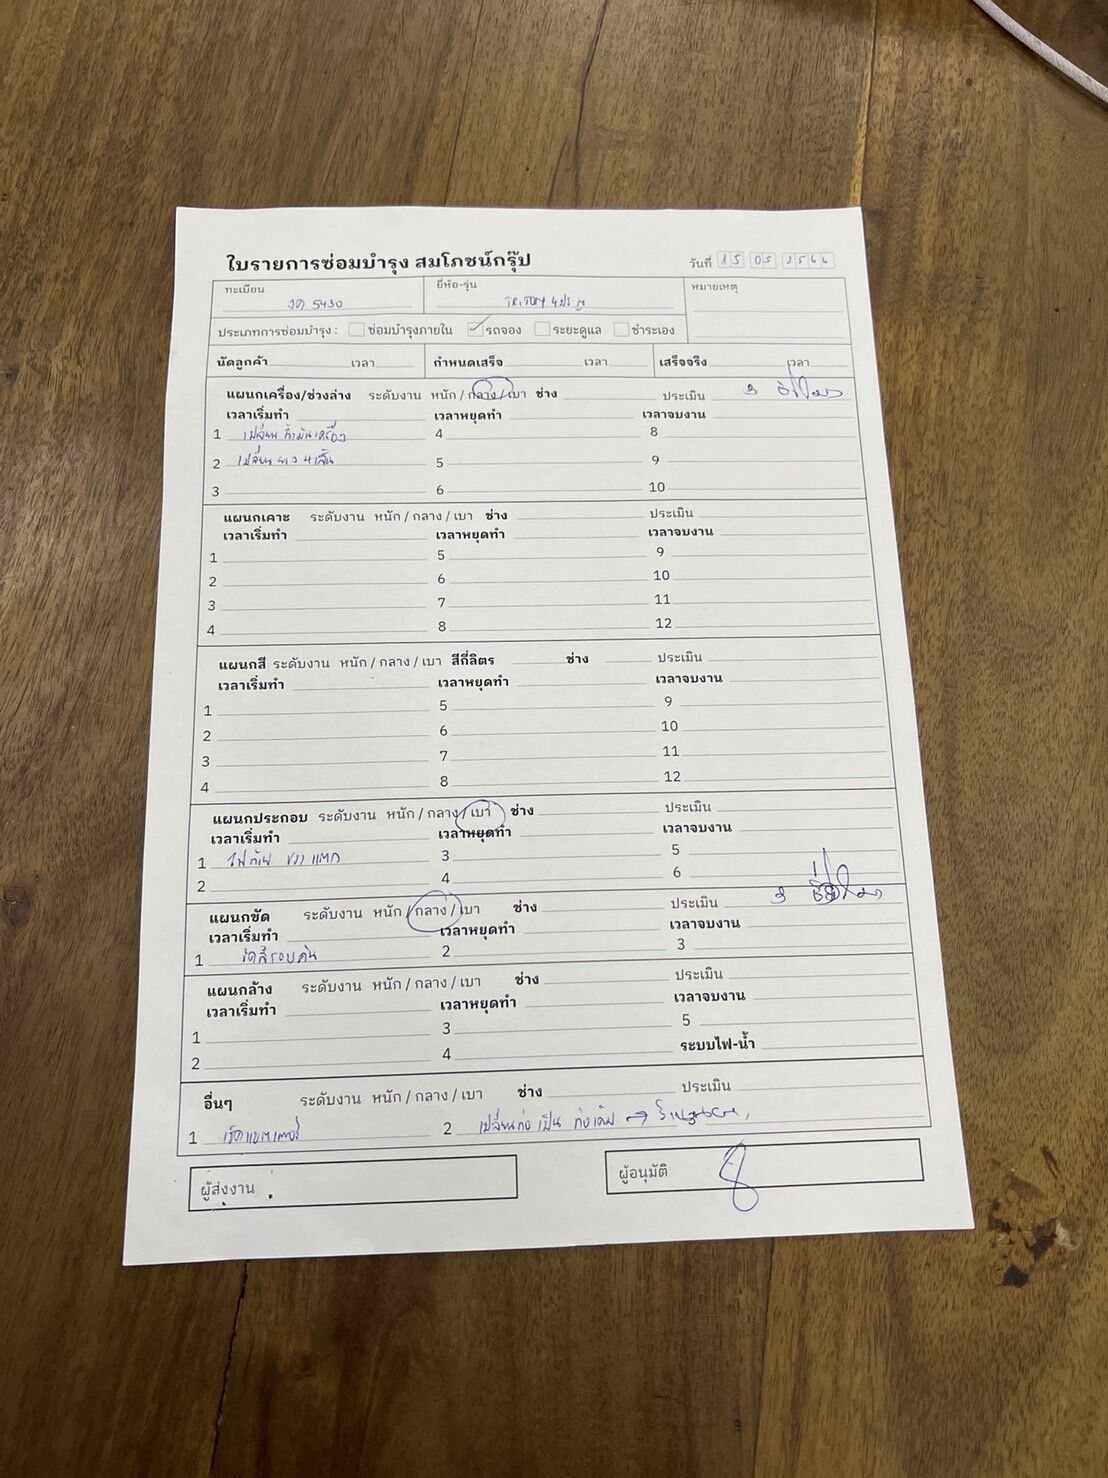 ใบรายการซ่อมบำรุง สมโภชน์กรุ๊ป วันที่ 15 05 2566
ทะเบียน ยี่ห้อ-รุ่น หมายเหตุ
5430 TRITON 4ประตู
ประเภทการซ่อมบำรุง : ซ่อมบำรุงภายใน รถจอง ระยะดูแล ชำระเอง
นัดลูกค้า เวลา กำหนดเสร็จ เวลา เสร็จจริง เวลา
แผนกเครื่อง/ช่วงล่าง ระดับงาน หนัก / กลาง / เบา ช่าง ประเมิน 3 ชั่วโมง
เวลาเริ่มทำ เวลาหยุดทำ เวลาจบงาน
1 เปลี่ยน น้ำมันเครื่อง 4 8
2 เปลี่ยน ยาง 4 เส้น 5 9
3 6 10
แผนกเคาะ ระดับงาน หนัก / กลาง / เบา ช่าง ประเมิน
เวลาเริ่มทำ เวลาหยุดทำ เวลาจบงาน
1 5 9
2 6 10
3 7 11
4 8 12
แผนกสี ระดับงาน หนัก / กลาง / เบา สีกี่ลิตร ช่าง ประเมิน
เวลาเริ่มทำ เวลาหยุดทำ เวลาจบงาน
1 5 9
2 6 10
3 7 11
4 8 12
แผนกประกอบ ระดับงาน หนัก / กลาง / เบา ช่าง ประเมิน
เวลาเริ่มทำ เวลาหยุดทำ เวลาจบงาน
1 ไฟท้าย ขวา แตก 3 5
2 4 6
แผนกขัด ระดับงาน หนัก / กลาง / เบา ช่าง ประเมิน 3 ชั่วโมง
เวลาเริ่มทำ เวลาหยุดทำ เวลาจบงาน
1 ขัดสีรอบคัน 2 3
แผนกล้าง ระดับงาน หนัก / กลาง / เบา ช่าง ประเมิน
เวลาเริ่มทำ เวลาหยุดทำ เวลาจบงาน
1 3 5
2 4 ระบบไฟ-น้ำ
อื่นๆ ระดับงาน หนัก / กลาง / เบา ช่าง ประเมิน
1 เช็คแบตเตอรี่ 2 เปลี่ยนท่อ เป็น ท่อเดิม →
ผู้ส่งงาน ผู้อนุมัติ